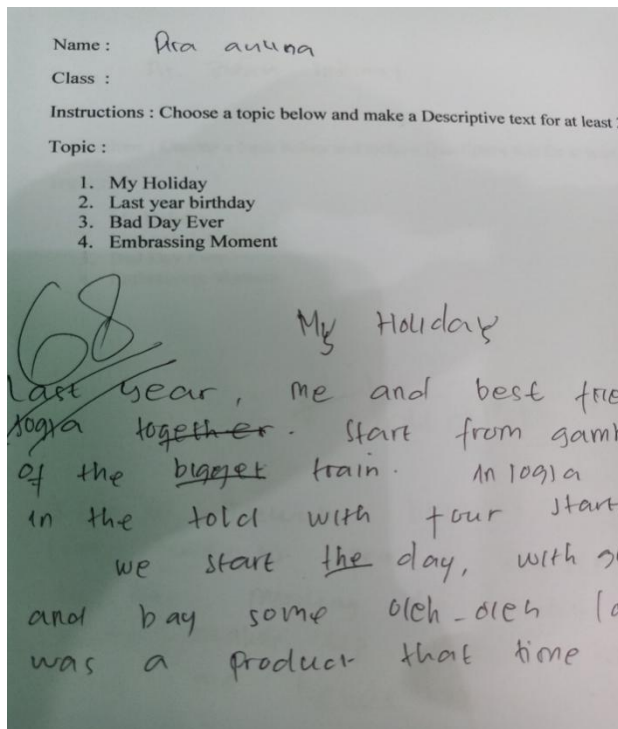 Name :
Class :
Instructions : Choose a topic below and make a Descriptive text for at least
Topic :
1. My Holiday
2. Last year birthday
3. Bad Day Ever
4. Embrassing Moment
68
My Holiday
Last year, me and best frie
together. Start from gamb
of the bigget train. In Jogja
in the told with four start
we start the day, with
and bay some oleh-oleh
was a product that time